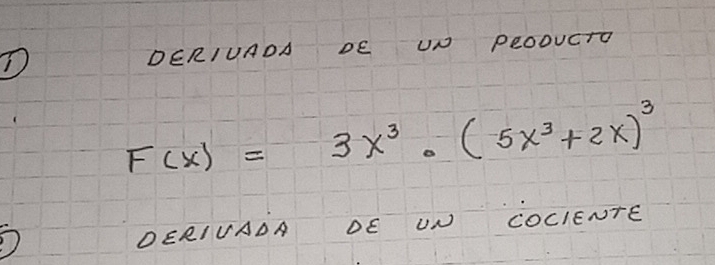 1) DERIVADA DE UN PRODUCTO
F(x) = 3x³ . (5x³+2x)³
2) DERIVADA DE UN COCIENTE